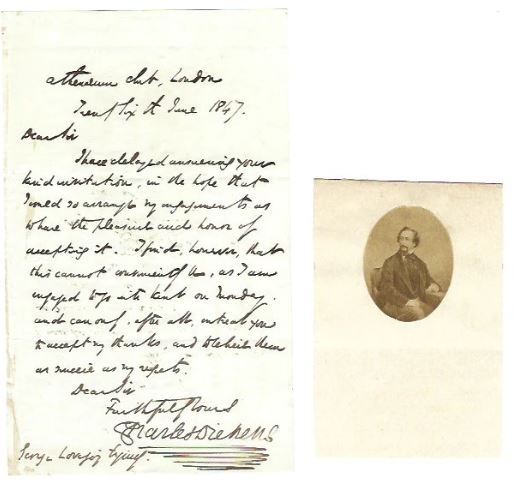 Athenaeum Club, London
Twenty Sixth June 1847.
Dear Sir
I have delayed answering your
kind invitation, in the hope that
I could so arrange my engagements as
to have the pleasure and honor of
accepting it. I find, however, that
this cannot conveniently be, as I am
engaged to go into Kent on Monday.
and can only, after all, entreat you
to accept my thanks, and to believe them
as sincere as my regrets.
Dear Sir
Faithfully Yours
Charles Dickens
George Lovejoy Esquire.